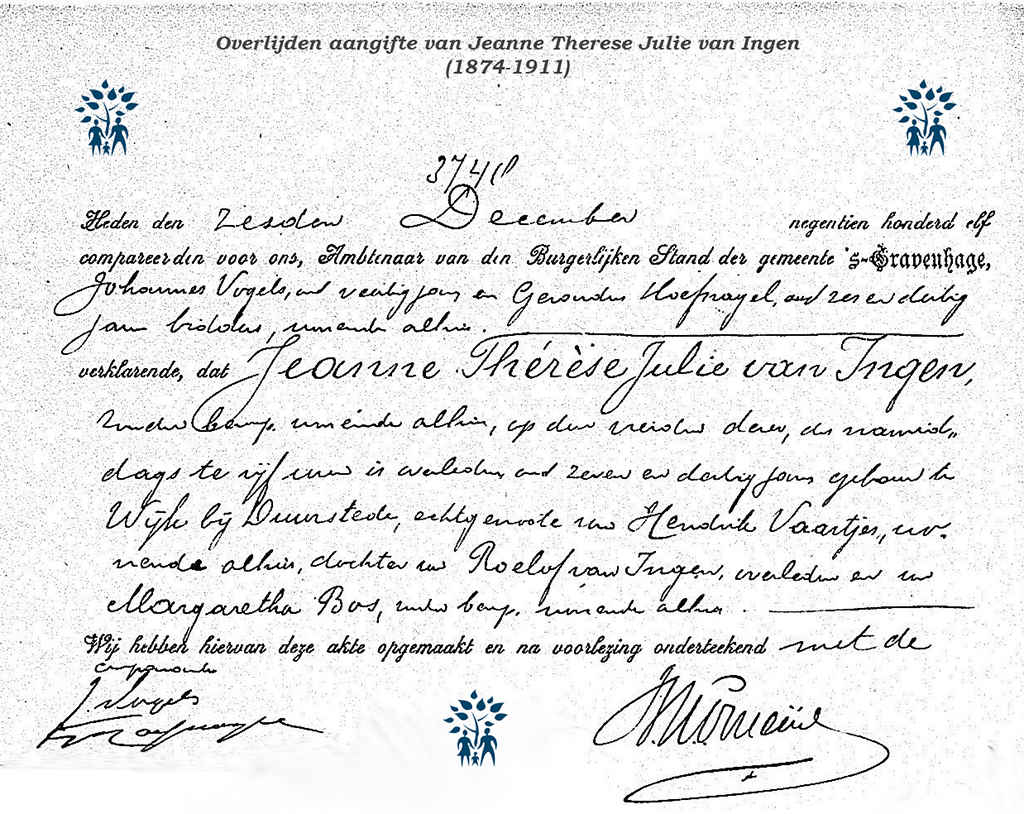 Overlijden aangifte van Jeanne Therese Julie van Ingen
(1874-1911)
Heden den zesden December negentien honderd elf
compareerden voor ons, Ambtenaar van den Burgerlijken Stand der gemeente 's-Gravenhage,
Johannes Vogels, oud veertig jaar en Gerardus Hoefnagel, oud zes en dertig
jaar, wonende alhier.
verklarende, dat Jeanne Thérèse Julie van Ingen,
zonder beroep, wonende alhier, op den vierden dezer, des namid„
dags te vijf uur is overleden, oud zeven en dertig jaar, geboren te
Wijk bij Duurstede, echtgenoote van Hendrik Vaartjes, wo-
nende alhier, dochter van Roelof van Ingen, overleden en van
Margaretha Bos, zonder beroep, wonende alhier.
Wij hebben hiervan deze akte opgemaakt en na voorlezing onderteekend met de
comparanten
J. Vogels